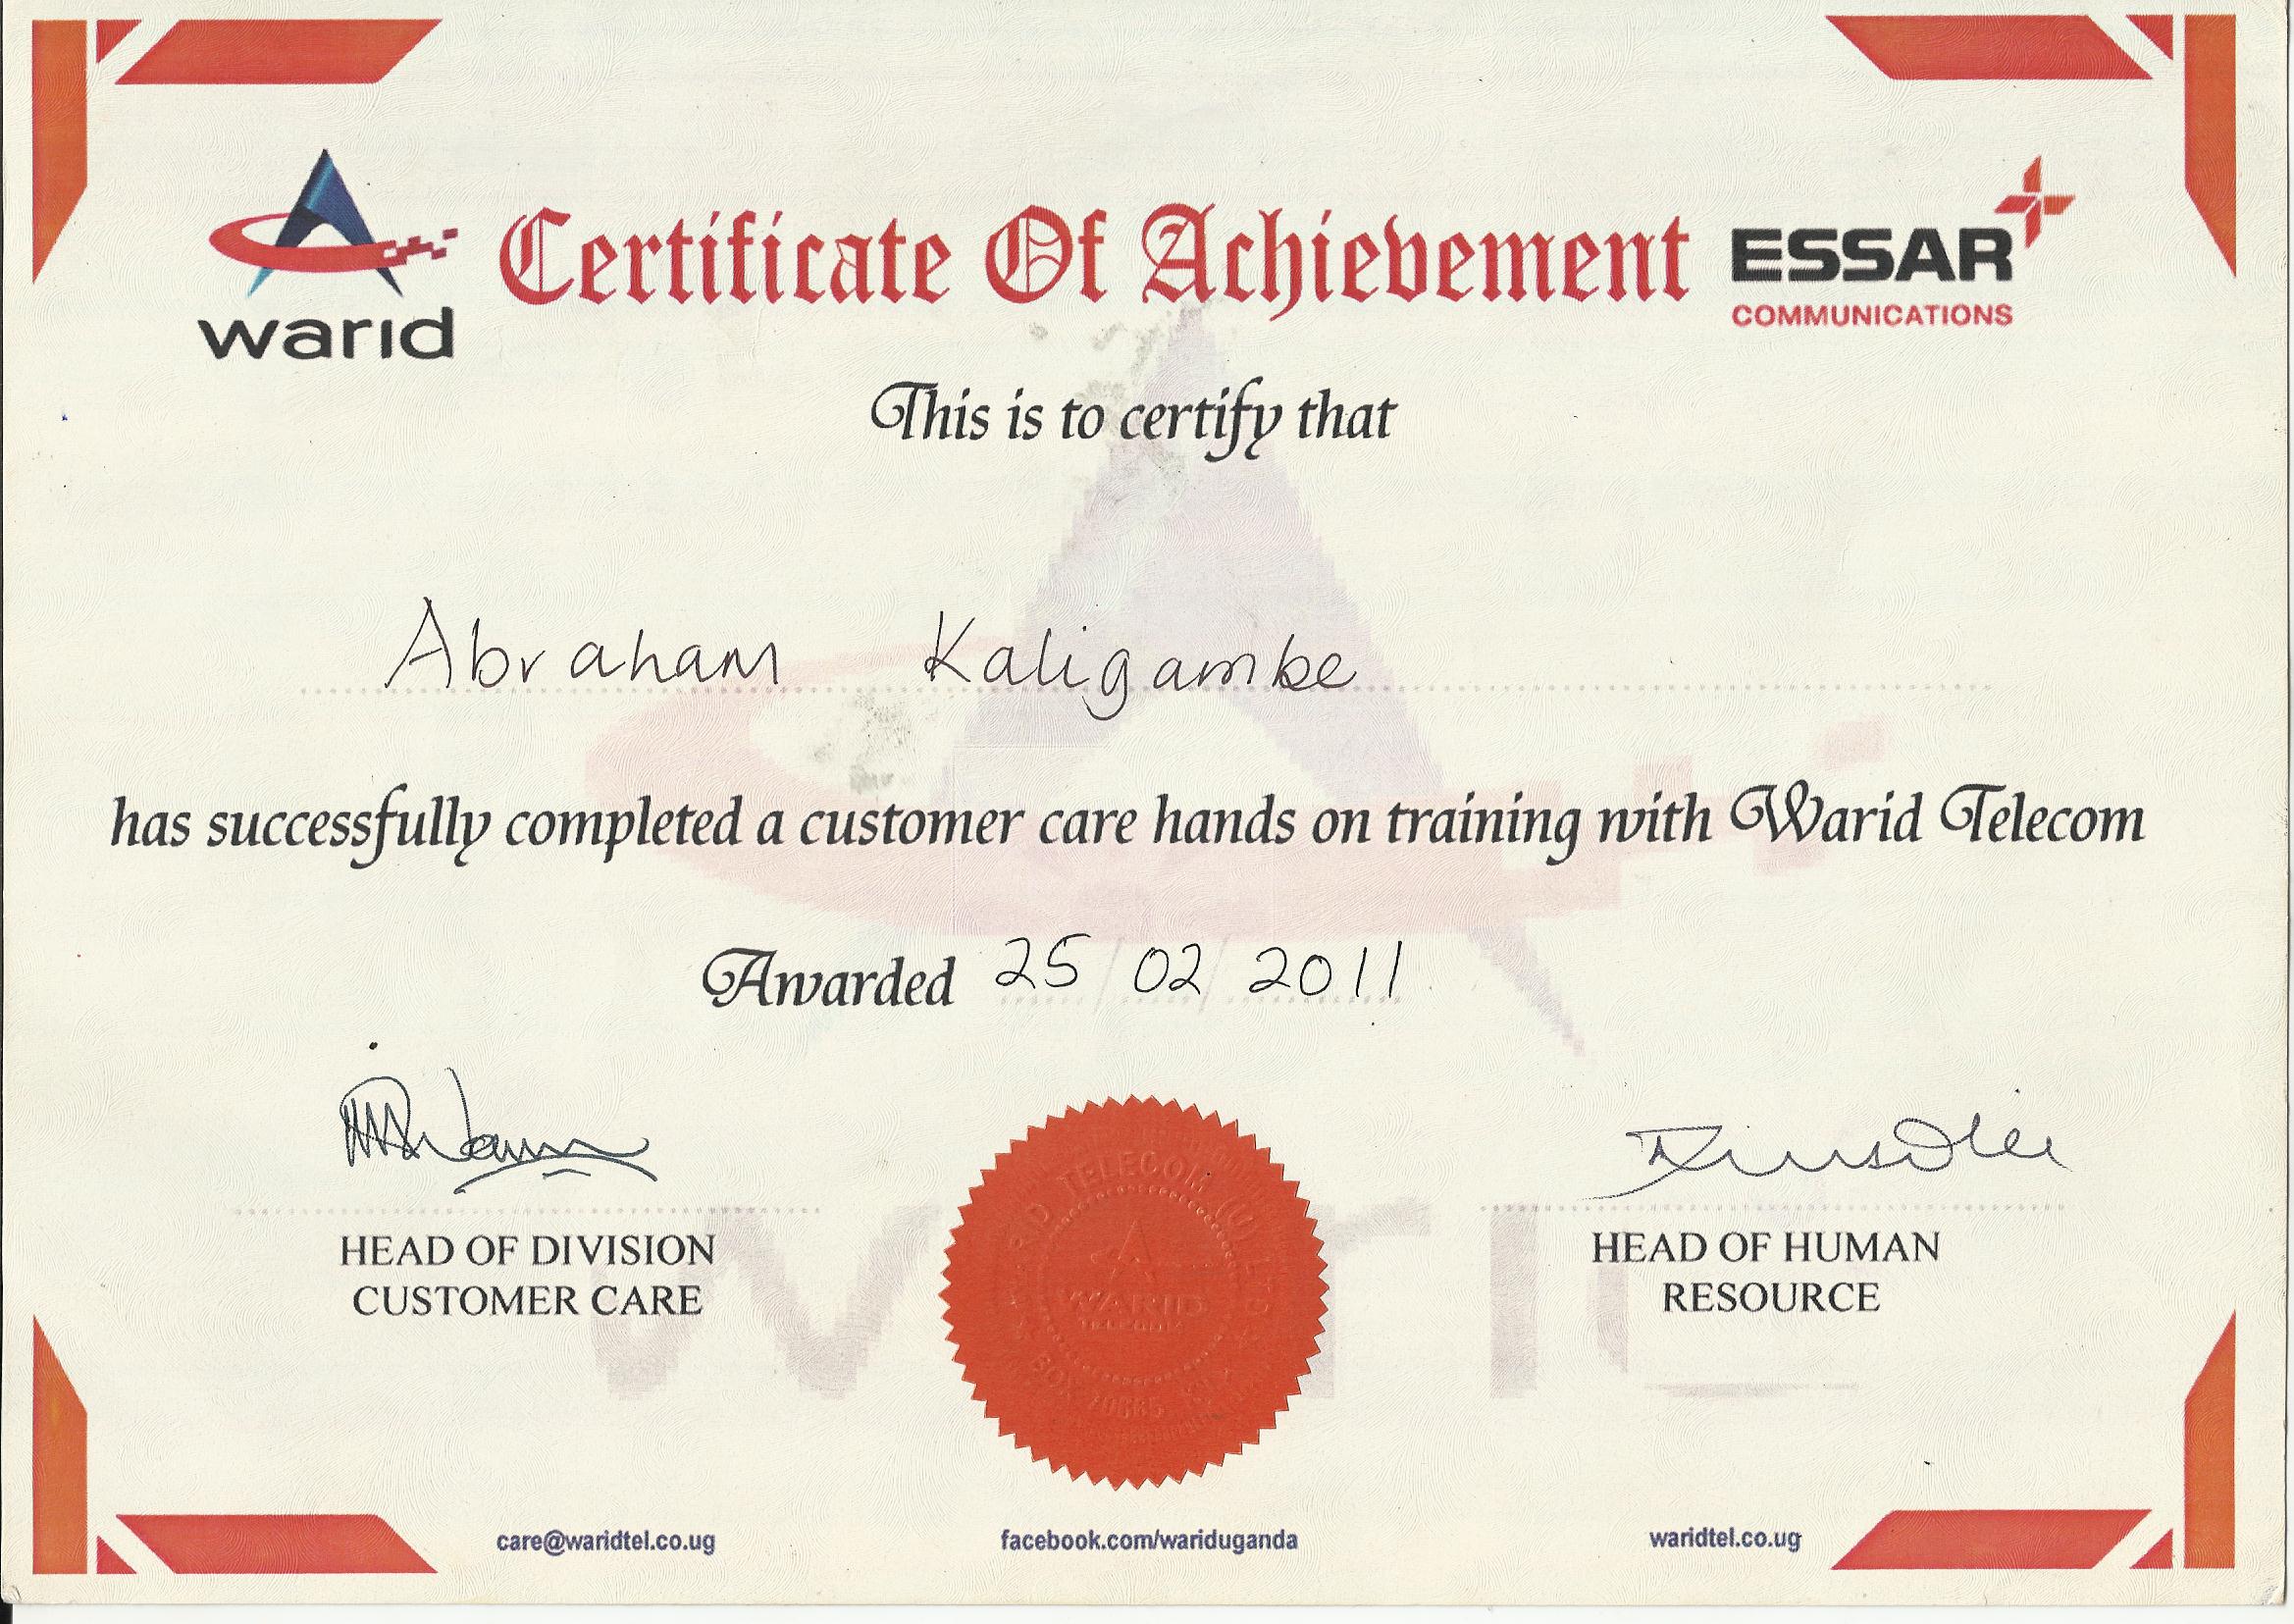 warid
Certificate Of Achievement
ESSAR
COMMUNICATIONS
This is to certify that
Abraham Kaligambe
has successfully completed a customer care hands on training with Warid Telecom
Awarded 25 / 02 / 2011
HEAD OF DIVISION
CUSTOMER CARE
HEAD OF HUMAN
RESOURCE
TELECOM (U)
WARID
TELECOM
care@waridtel.co.ug
facebook.com/wariduganda
waridtel.co.ug